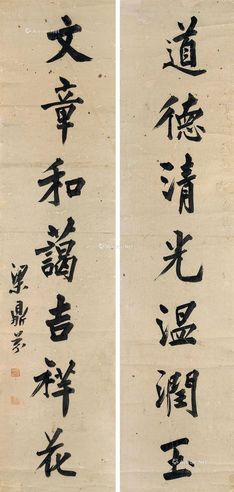 道德清光溫潤玉
文章和藹吉祥花
梁鼎芬